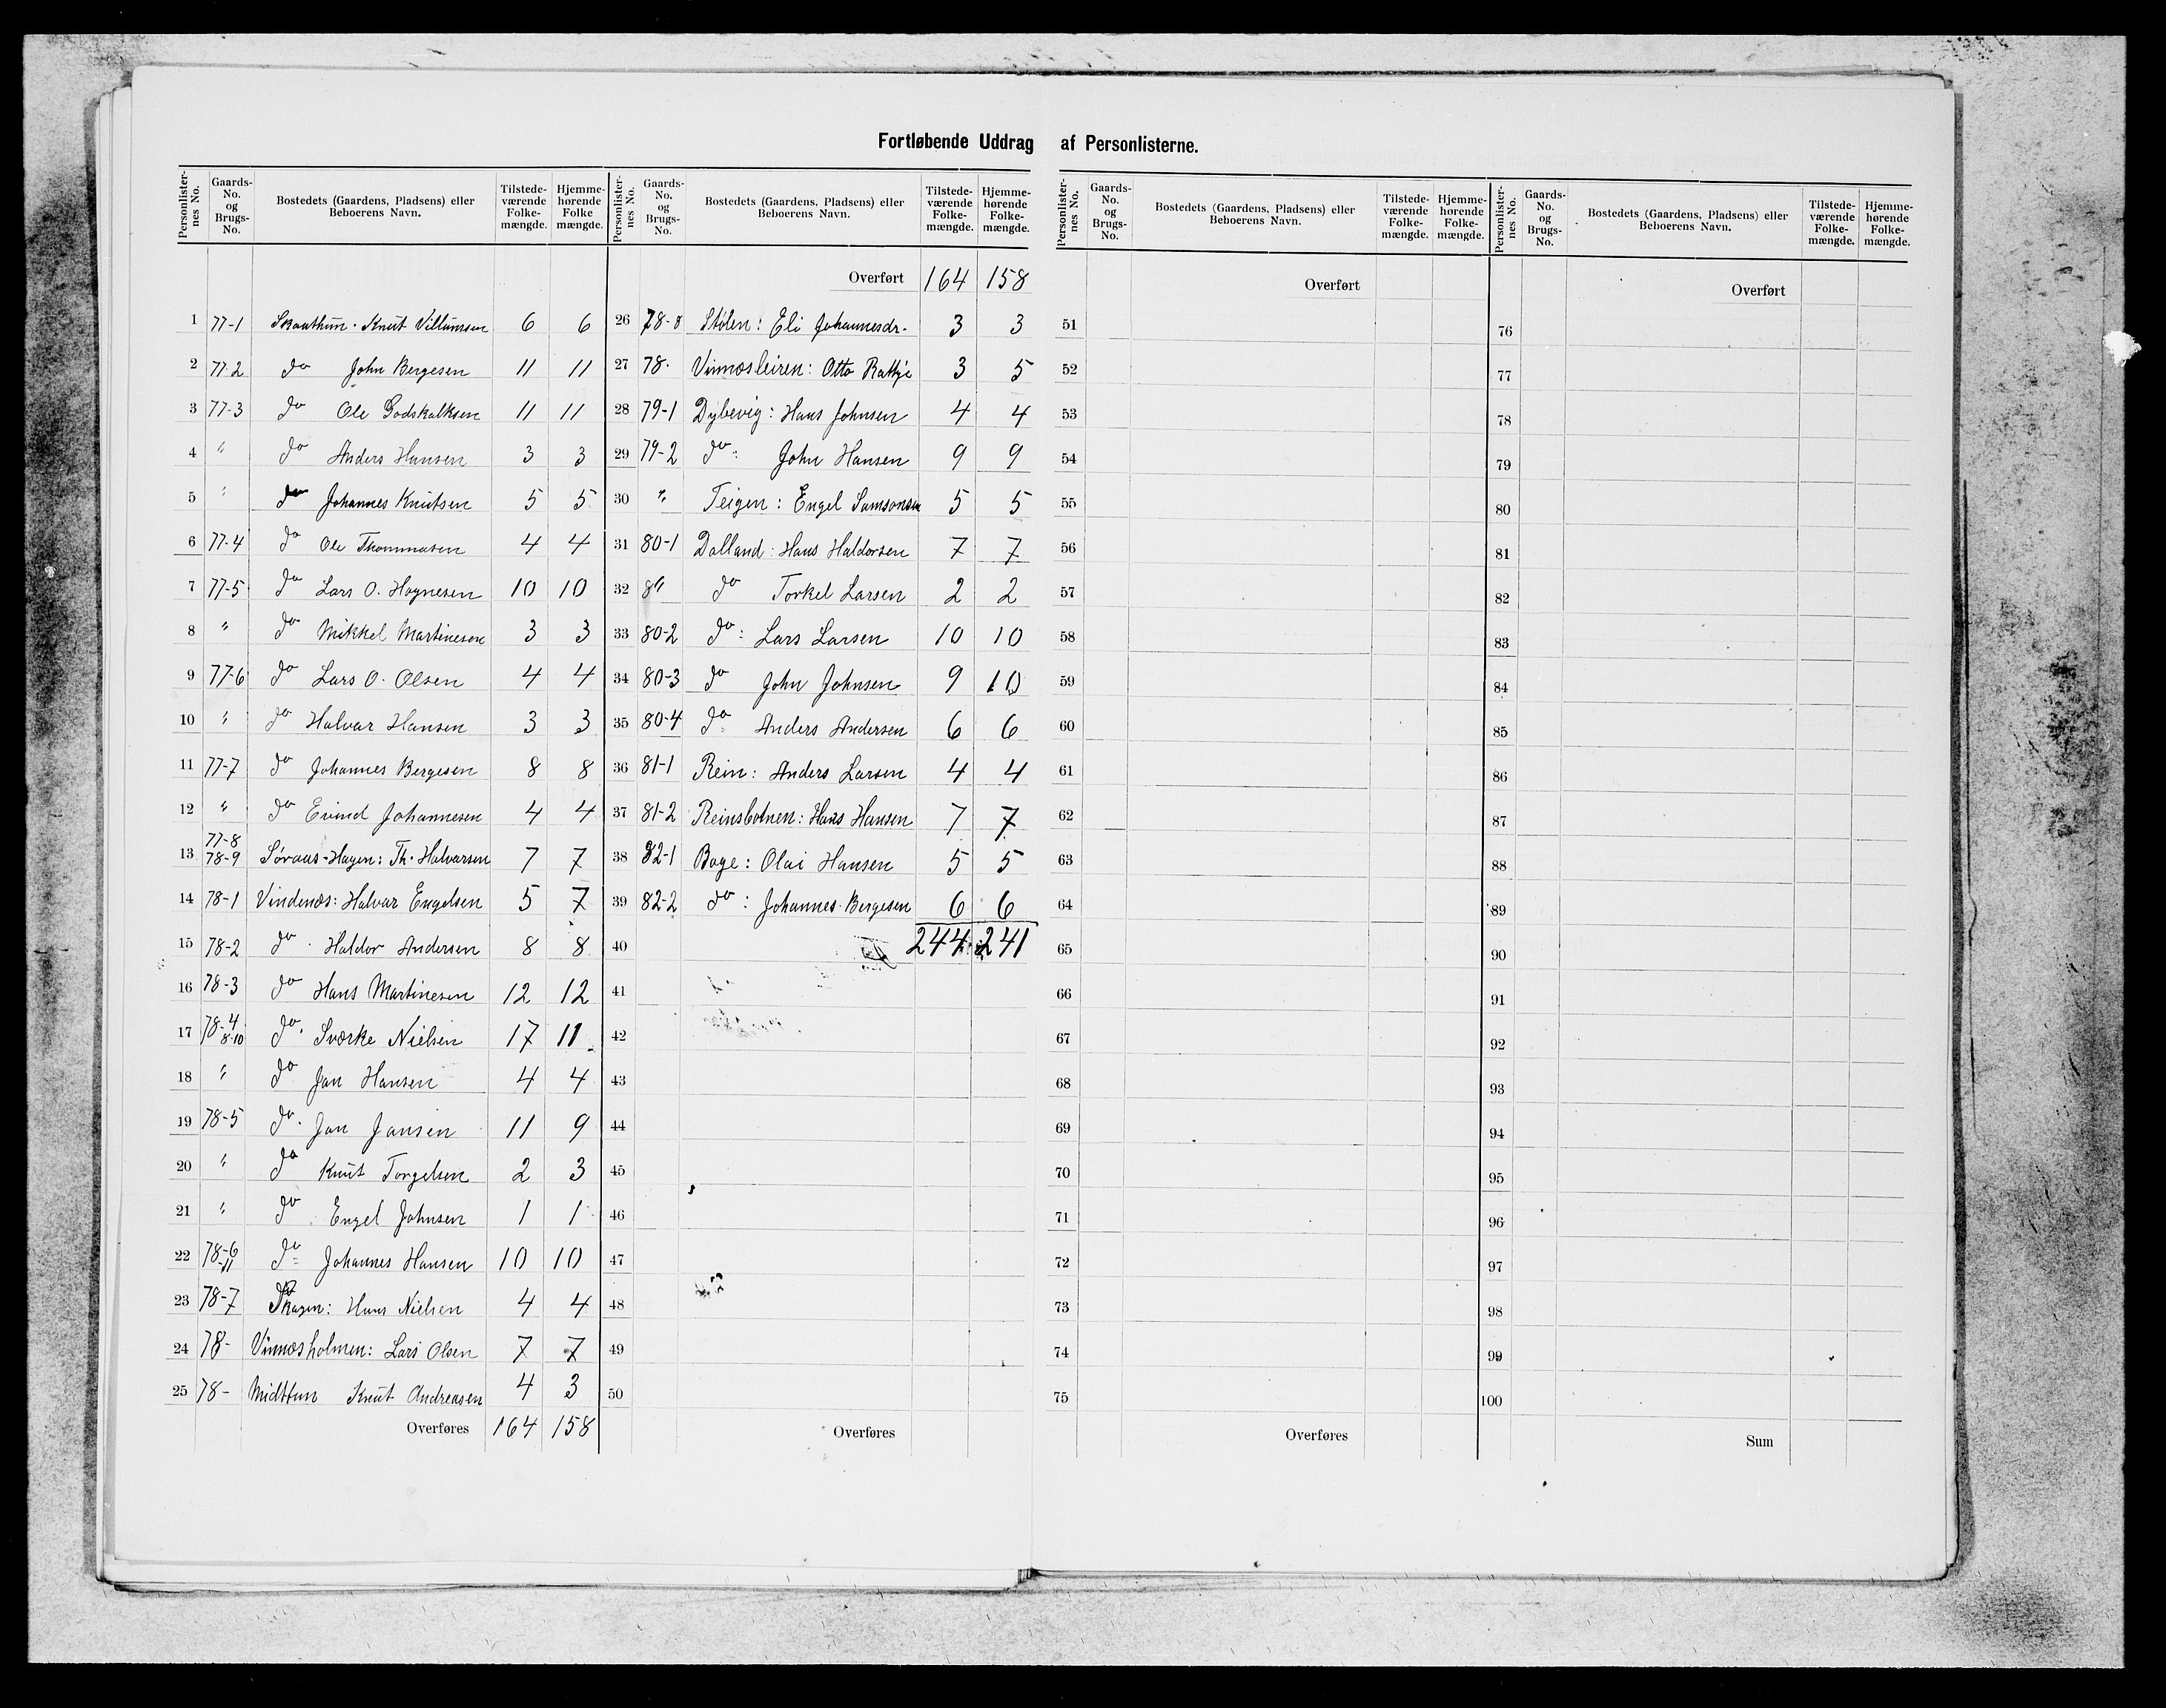 Fortløbende Uddrag af Personlisterne.
Personlister-nes No. | Gaards-No. og Brugs-No. | Bostedets (Gaardens, Pladsens) eller Beboerens Navn. | Tilstede-værende Folke-mængde. | Hjemme-hørende Folke mængde.
1 77-1 Skaathun. Knut Villumsen 6 6
2 77-2 do John Bergesen 11 11
3 77-3 do Ole Godskalksen 11 11
4 " do Anders Hansen 3 3
5 " do Johannes Knutsen 5 5
6 77-4 do Ole Thommasen 4 4
7 77-5 do Lars O. Hagnesen 10 10
8 " do Mikkel Martinesen 3 3
9 77-6 do Lars O. Olsen 4 4
10 " do Halvar Hansen 3 3
11 77-7 do Johannes Bergesen 8 8
12 " do Eivind Johannesen 4 4
13 77-8 78-9 Søraas-Hagen: Th. Halvarsen 7 7
14 78-1 Vindenæs: Halvar Engelsen 5 7
15 78-2 do. Haldor Andersen 8 8
16 78-3 do Hans Martinesen 12 12
17 78-4 8-10 do. Sværke Nielsen 17 11
18 " do Jan Hansen 4 4
19 78-5 do. Jan Jansen 11 9
20 " do Knut Torgelsen 2 3
21 " do Engel Johnsen 1 1
22 78-6 -11 do Johannes Hansen 10 10
23 78-7 Skagen: Hans Nielsen 4 4
24 78- Vinnæsholmen: Lars Olsen 7 7
25 78- Midttun Knut Andreasen 4 3
Overføres 164 158
Personlister-nes No. | Gaards-No. og Brugs-No. | Bostedets (Gaardens, Pladsens) eller Beboerens Navn. | Tilstede-værende Folke-mængde. | Hjemme-hørende Folke-mængde.
Overført 164 158
26 78-8 Stølen: Eli Johannesdr. 3 3
27 78. Vinnæsleiren: Otto Rattje 3 5
28 79-1 Dybevig: Hans Johnsen 4 4
29 79-2 do: John Hansen 9 9
30 " Teigen: Engel Samsonsen 5 5
31 80-1 Dalland: Hans Haldorsen 7 7
32 8" do Torkel Larsen 2 2
33 80-2 do: Lars Larsen 10 10
34 80-3 do John Johnsen 9 10
35 80-4 do Anders Andersen 6 6
36 81-1 Rein: Anders Larsen 4 4
37 81-2 Reinsbotnen: Hans Hansen 7 7
38 82-1 Boge: Olai Hansen 5 5
39 82-2 do: Johannes Bergesen 6 6
40 244 241
41
42
43
44
45
46
47
48
49
50
Overføres
Personlister-nes No. | Gaards-No. og Brugs-No. | Bostedets (Gaardens, Pladsens) eller Beboerens Navn. | Tilstede-værende Folke-mængde. | Hjemme-hørende Folke-mængde.
Overført
51
52
53
54
55
56
57
58
59
60
61
62
63
64
65
66
67
68
69
70
71
72
73
74
75
Overføres
Personlister-nes No. | Gaards-No. og Brugs-No. | Bostedets (Gaardens, Pladsens) eller Beboerens Navn. | Tilstede-værende Folke-mængde. | Hjemme-hørende Folke-mængde.
Overført
76
77
78
79
80
81
82
83
84
85
86
87
88
89
90
91
92
93
94
95
96
97
98
99
100
Sum